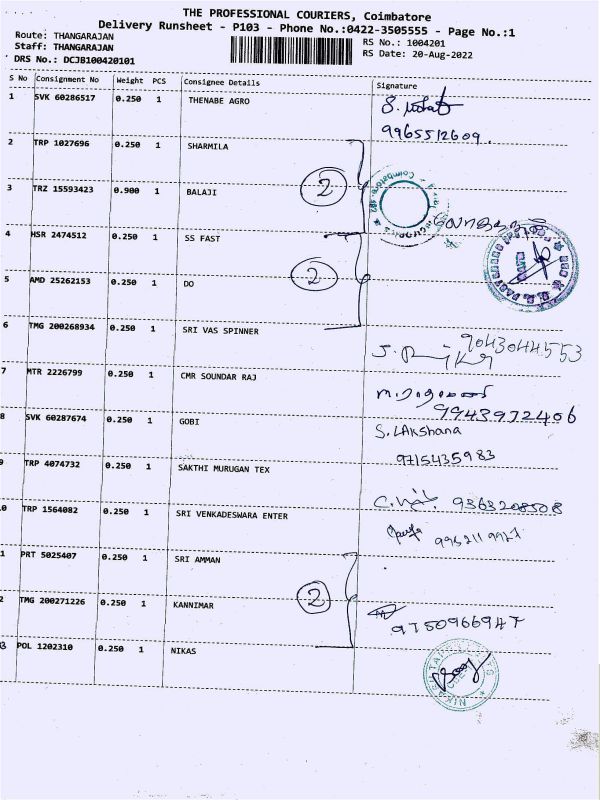 THE PROFESSIONAL COURIERS, Coimbatore
Delivery Runsheet - P103 - Phone No.:0422-3505555 - Page No.:1
Route: THANGARAJAN
Staff: THANGARAJAN
DRS No.: DCJB100420101
RS No.: 1004201
RS Date: 20-Aug-2022
S No Consignment No Weight PCS Consignee Details Signature
1 SVK 60286517 0.250 1 THENABE AGRO
9965512609.
2 TRP 1027696 0.250 1 SHARMILA
3 TRZ 15593423 0.900 1 BALAJI
2
4 HSR 2474512 0.250 1 SS FAST
5 AMD 25262153 0.250 1 DO
2
6 TMG 200268934 0.250 1 SRI VAS SPINNER
9043044553
7 MTR 2226799 0.250 1 CMR SOUNDAR RAJ
9943972406
8 SVK 60287674 0.250 1 GOBI
S. LAkshana
9715435983
9 TRP 4074732 0.250 1 SAKTHI MURUGAN TEX
9363208508
0 TRP 1564082 0.250 1 SRI VENKADESWARA ENTER
1 PRT 5025407 0.250 1 SRI AMMAN
2 TMG 200271226 0.250 1 KANNIMAR
2
9750966947
3 POL 1202310 0.250 1 NIKAS